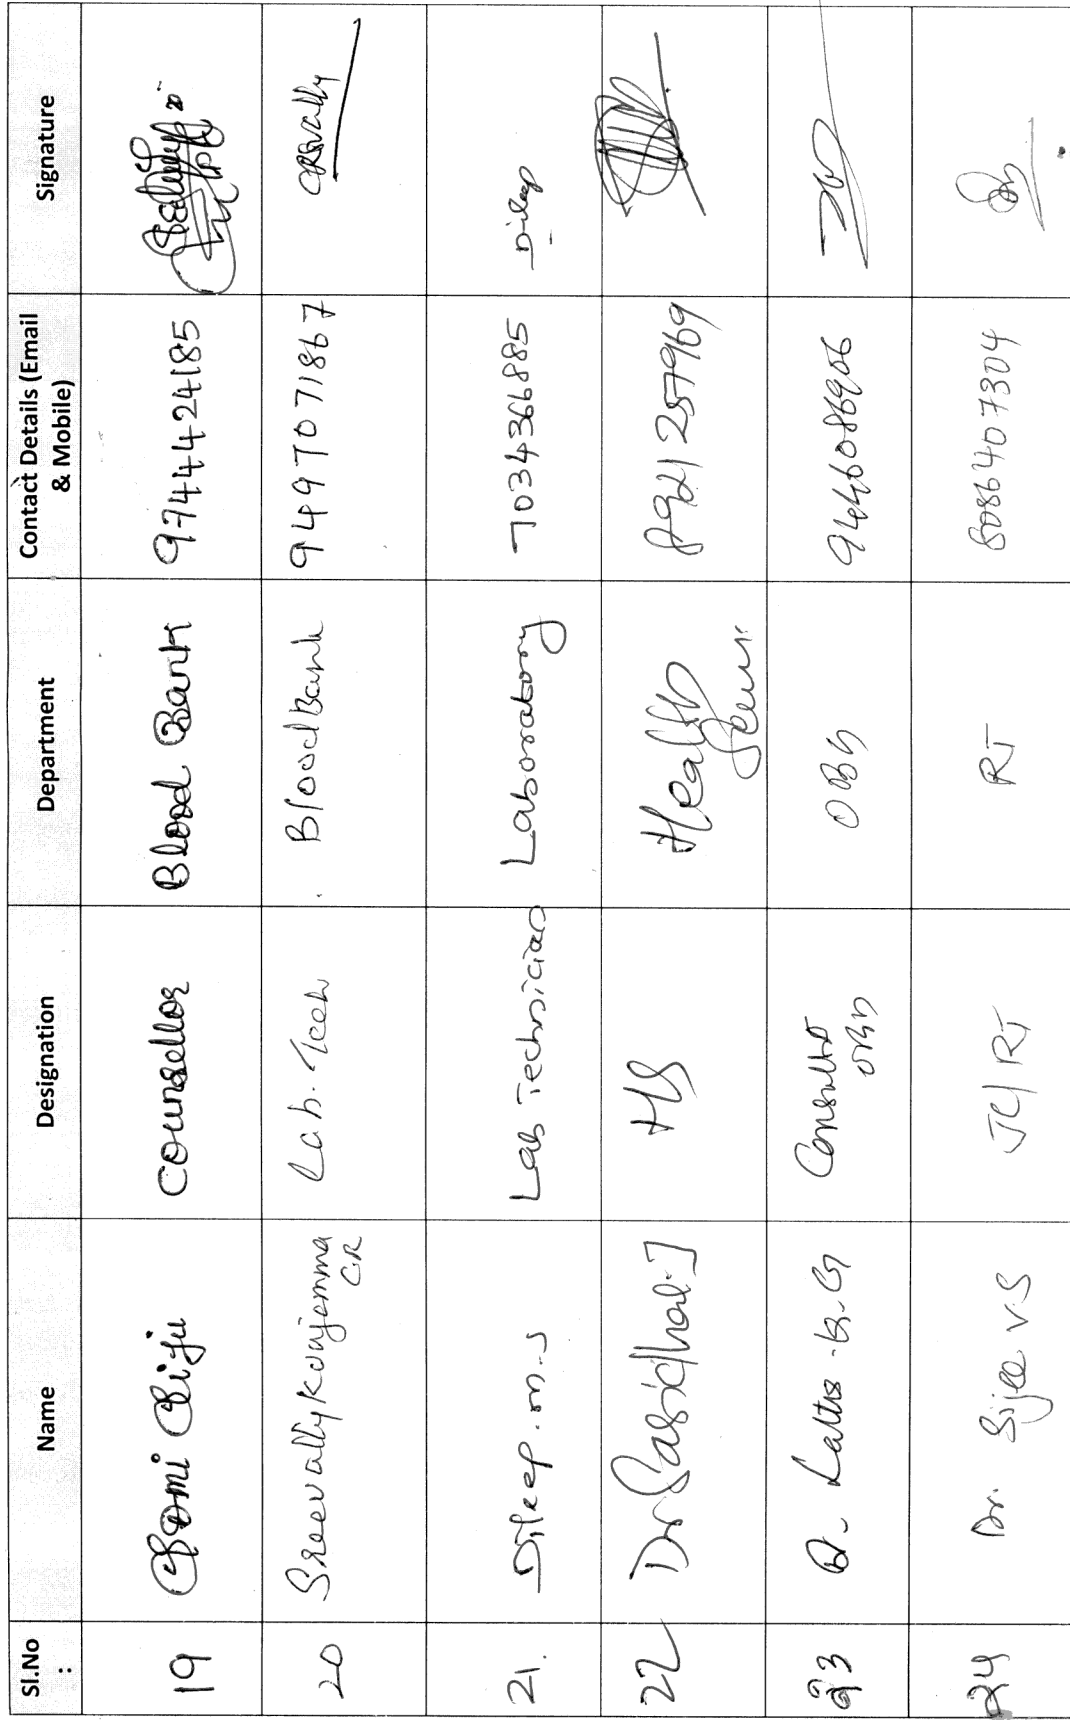 Sl.No : Name Designation Department Contact Details (Email & Mobile) Signature
19 Biju Counsellor Blood Bank 9744424185
20 Sreevallykunjamma CR Lab. Tech Blood Bank 9497071867
21. Dileep.m.s Lab Technician Laboratory 7034366885 Dileep
22 Dr Sasidharan J HS Health 8921257969
23 Dr. OBG 9446086906
24 Dr. Sijee V.S JC/RT RT 8086407304